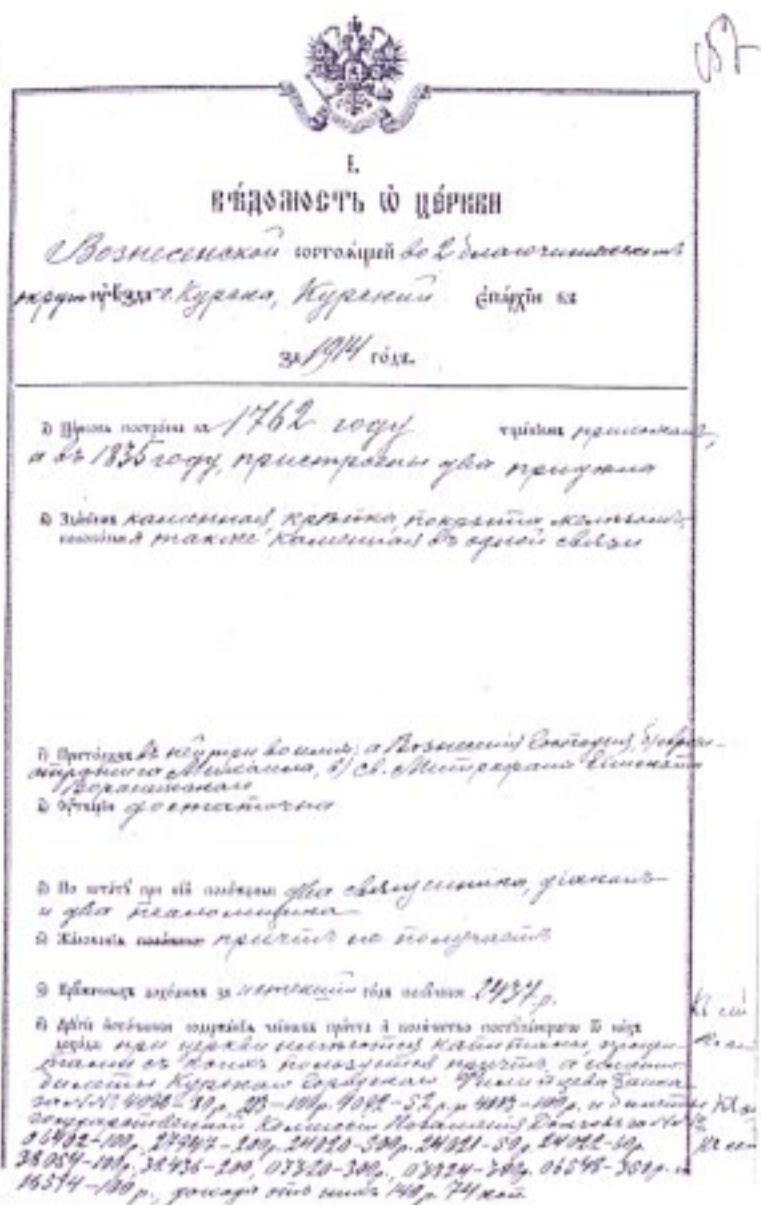 І.
ВѢДОМОСТЬ Ѡ ЦЕРКВИ
Вознесенской состоящей во 2 благочинническомъ
округѣ уѣзда г. Курска, Курской епархіи въ
за 1914 годъ.
1) Церковь построена въ 1762 году тщаніемъ прихожанъ,
а въ 1835 году, пристроены два придѣла
2) Зданіемъ каменная, крѣпка, покрыта желѣзомъ,
колокольня также каменная въ одной связи
3) Престоловъ въ ней три во имя: а Вознесенія Господня, б)
Михаила, в) св. Митрофана Епископа
Воронежскаго
4) Утварію достаточна
5) По штату при ней положены два священника, діаконъ
и два псаломщика
6) Жалованья положено причтъ не получаетъ
7) Кружечныхъ доходовъ за истекшій годъ получено 2437 р.
8) Другіе источники содержанія членовъ причта и количество поступившаго Ѿ нихъ
дохода: при церкви имѣются капиталы,
съ коихъ пользуется причтъ, а
билеты Курскаго Городскаго Банка
за №№ 80 р., 100 р. 4092-52 р. и 100 р. и билеты
Государственной Коммиссіи Погашенія Долговъ за №№
06402-100 р., 27947-200 р. 24020-300 р. 24021-50 р. 24022-50 р.
38054-100 р., 32436-200, 07320-300 р., 06548-300 р. и
16514-100 р., дохода отъ нихъ 140 р. 74 коп.